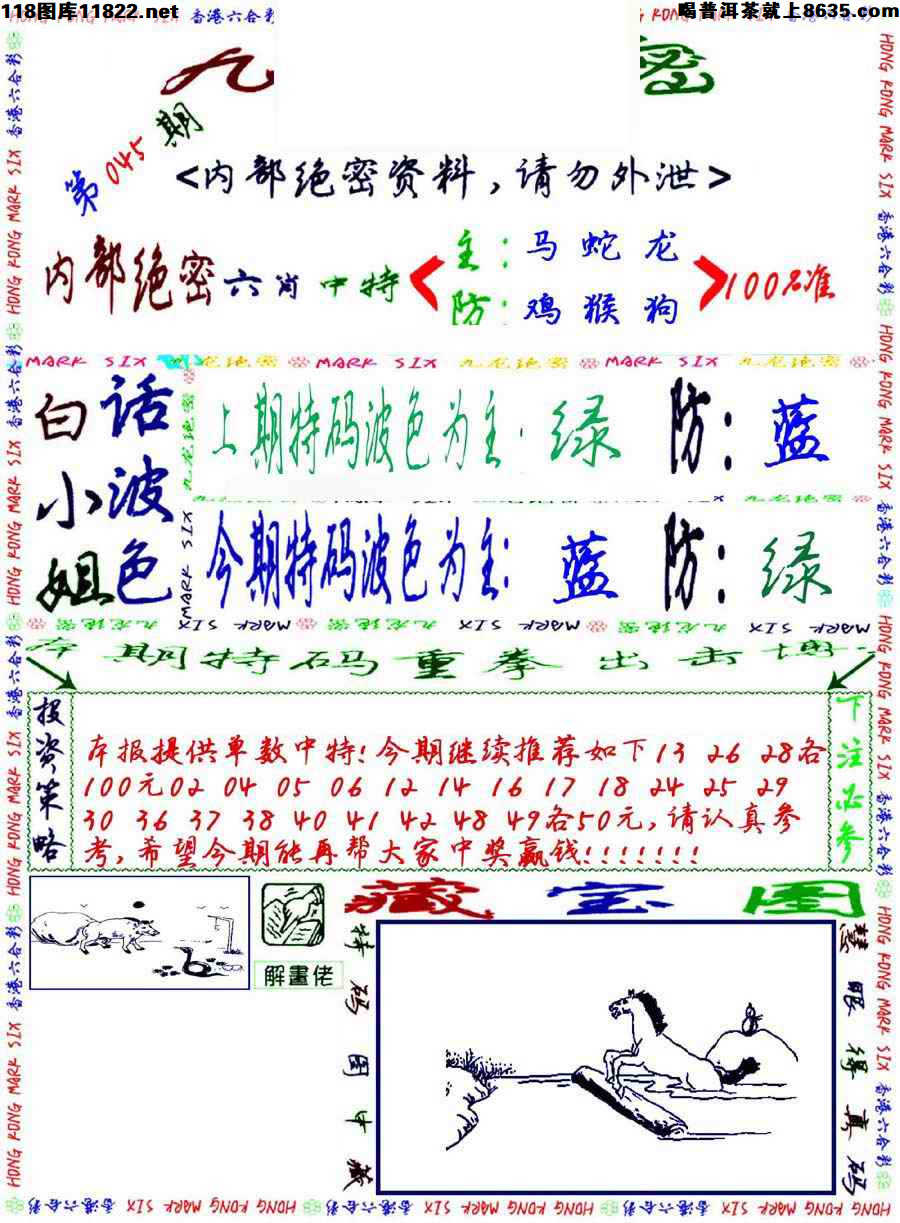 118图库11822.net
喝普洱茶就上8635.com
香港六合彩
九
密
第045期
<内部绝密资料,请勿外泄>
内部绝密六肖中特
主:马蛇龙
防:鸡猴狗
100%准
MARK SIX 九龙绝密 MARK SIX 九龙绝密 MARK SIX 九龙绝密
白小姐
话波色
上期特码波色为主:绿 防:蓝
今期特码波色为主:蓝 防:绿
本期特码重拳出击
投资策略
本报提供单数中特!今期继续推荐如下13 26 28各
100元02 04 05 06 12 14 16 17 18 24 25 29
30 36 37 38 40 41 42 48 49各50元,请认真参
考,希望今期能再帮大家中奖赢钱!!!!!!!
下注必参
解畫佬
藏宝图
特码图中藏
慧眼得真码
HONG KONG MARK SIX 香港六合彩